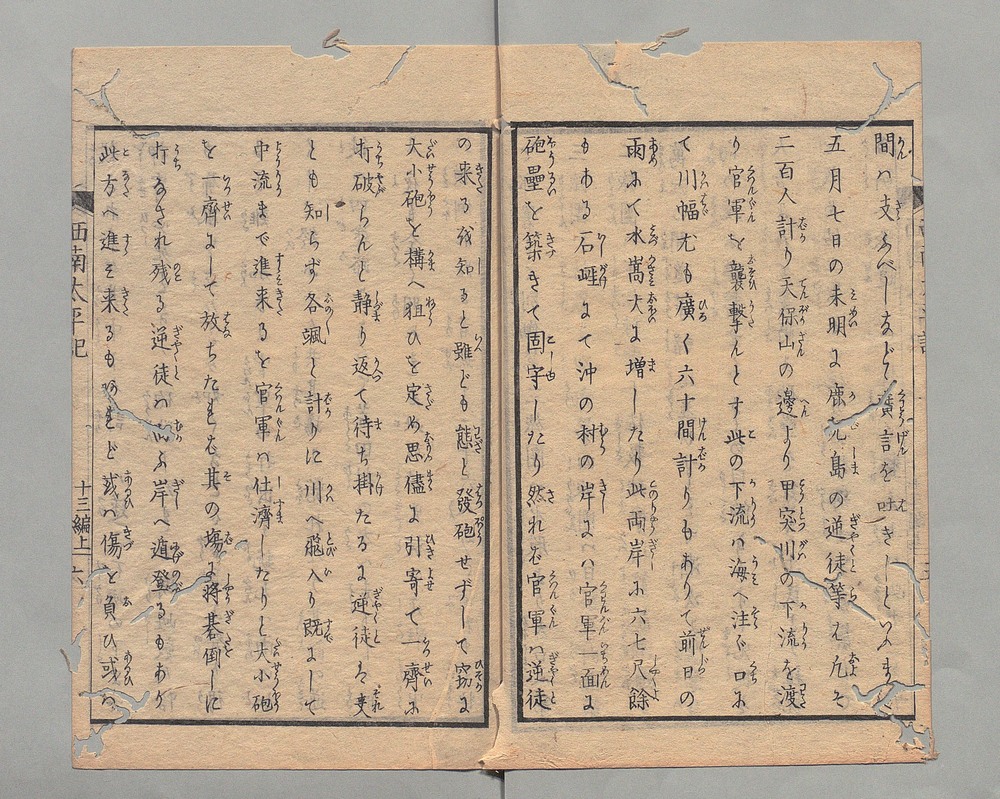 間ハ支ふべしなどゝ廣言を吐きしといふまに
五月七日の未明に鹿児島の逆徒等ハ凡そ
二百人計り天保山の邊より甲突川の下流を渡
り官軍を襲撃んとす此の下流ハ海へ注ぐ口に
て川幅尤も廣く六十間計りもありて前日の
雨にて水嵩大に増したり此両岸に六七尺餘
もある石崕にて沖の村の岸にハ官軍一面に
砲壘を築きて固守したり然れども官軍ハ逆徒
の来るを知ると雖ども態と發砲せずして窃に
大小砲を構へ狙ひを定め思儘に引寄て一齊に
打破らんと静り返て待ち掛たるに逆徒ハ夫
とも知らず各颯と計りに川へ飛入り既にして
中流まで進来るを官軍ハ仕濟したりと大小砲
を一齊にして放ちたれバ其の塲に将棊倒しに
打なされ残る逆徒ハ向ふ岸へ遁登るもあり
此方へ進み来るもあれど或ハ傷を負ひ或ハ
西南太平記
十三編上
六